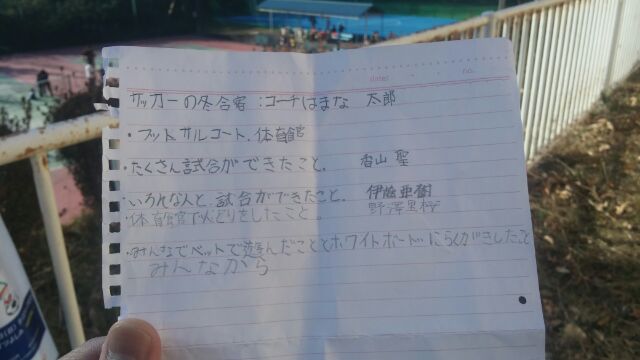 date no.
サッカーの冬合宿:コーチはまな 太郎
・フットサルコート、体育館
・たくさん試合ができたこと。 香山 聖
・いろんな人と、試合ができたこと。 伊 亜樹
・体育館でドッジをしたこと。 野澤里
・みんなでベットで遊んだこととホワイトボードにらくがきしたこと
みんなから